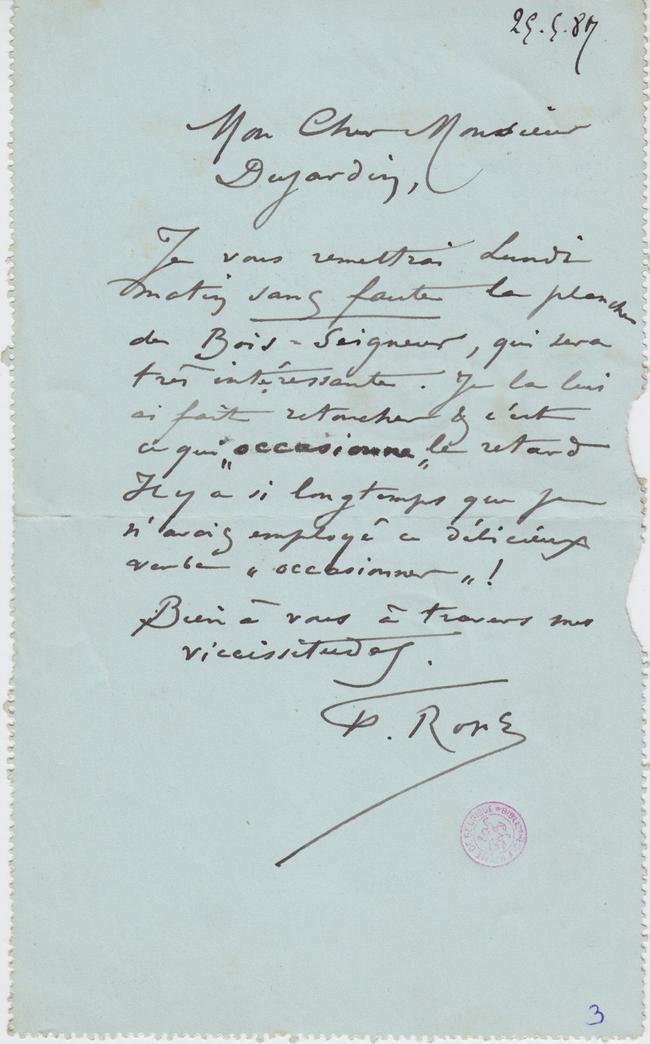 29.5.87
Mon Cher Monsieur
Dujardin,
Je vous remettrai Lundi
matin sans faute la planche
de Bois-Seigneur, qui sera
très intéressante. Je la lui
ai fait retoucher & c'est
ce qui „occasionne„ le retard
Il y a si longtemps que je
n'avais employé ce délicieux
verbe „occasionner„!
Bien à vous à travers mes
vicissitudes.
F. Rops
3